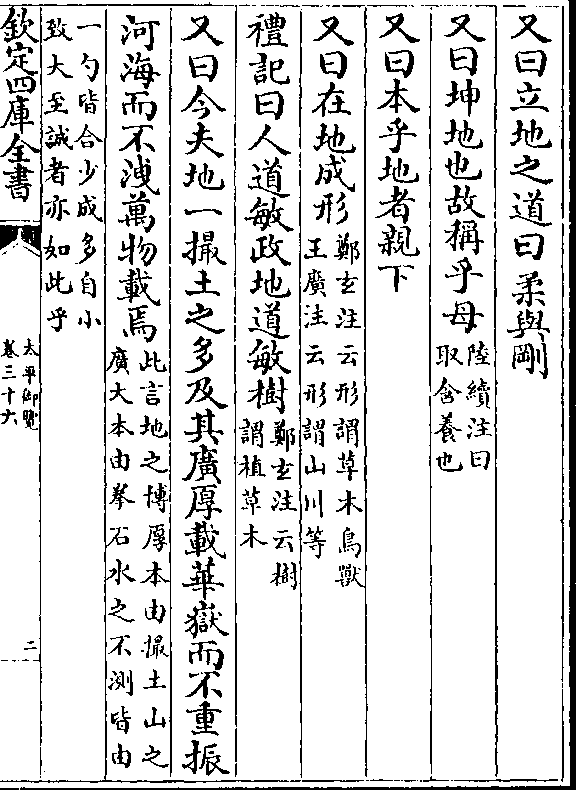 又曰立地之道曰柔與剛
又曰坤地也故稱乎母陸續注曰
取含養也
又曰本乎地者親下
又曰在地成形鄭玄注云形謂草木鳥獸
王廣注云形謂山川等
禮記曰人道敏政地道敏樹鄭玄注云樹
謂植草木
又曰今夫地一撮土之多及其廣厚載華嶽而不重振
河海而不洩萬物載焉此言地之博厚本由撮土山之
廣大本由拳石水之不測皆由
一勺皆合少成多自小
致大至誠者亦如此乎
欽定四庫全書
太平御覽
卷三十六
二